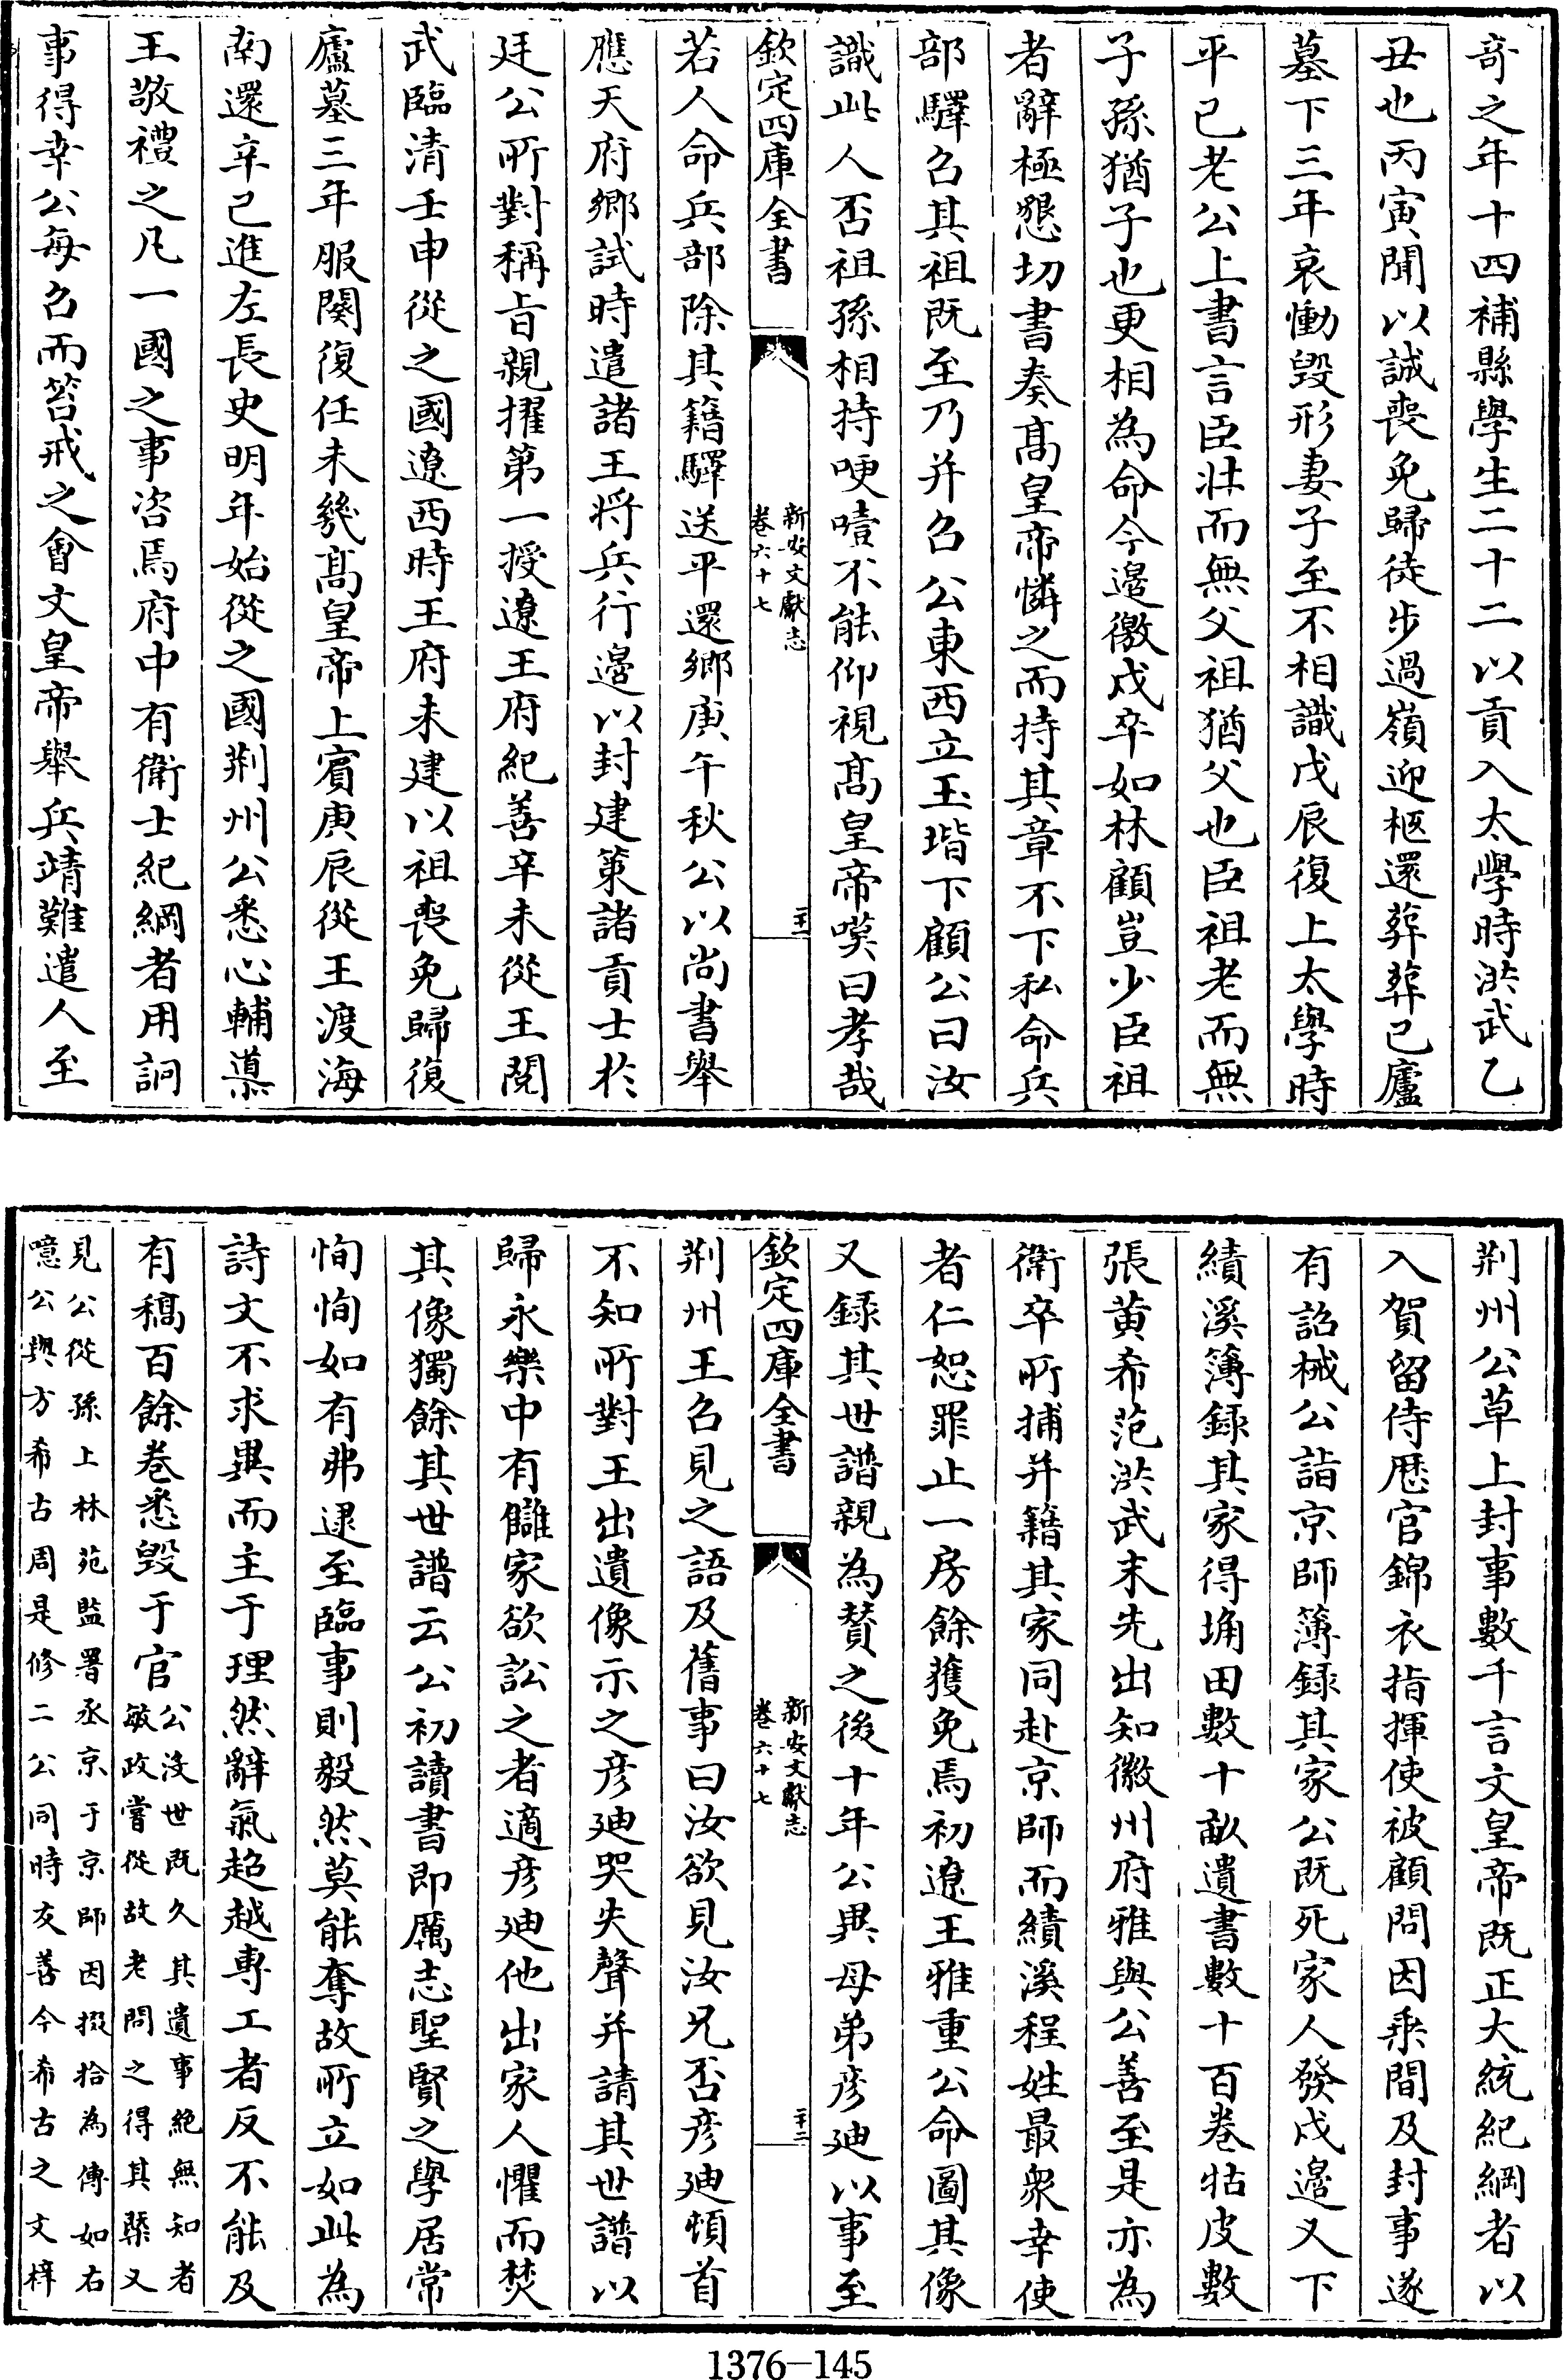 竒之年十四補縣學生二十二以貢入太學時洪武乙
丑也丙寅聞以誠喪免歸徒步過嶺迎柩還葬葬已廬
墓下三年哀慟毀形妻子至不相識戊辰復上太學時
平已老公上書言臣壯而無父祖猶父也臣祖老而無
子孫猶子也更相為命今邊徼戍卒如林顧豈少臣祖
者辭極懇切書奏髙皇帝憐之而持其章不下私命兵
部驛召其祖既至乃并召公東西立玉堦下顧公曰汝
識此人否祖孫相持哽噎不能仰視髙皇帝嘆曰孝哉
欽定四庫全書
新安文獻志
卷六十七
二十一
若人命兵部除其籍驛送平還鄉庚午秋公以尚書舉
應天府鄉試時遣諸王將兵行邊以封建策諸貢士於
廷公所對稱㫖親擢第一授遼王府紀善辛未從王閱
武臨清壬申從之國遼西時王府未建以祖喪免歸復
廬墓三年服闋復任未幾髙皇帝上賓庚辰從王渡海
南還辛巳進左長史明年始從之國荆州公悉心輔導
王敬禮之凡一國之事咨焉府中有衛士紀綱者用詗
事得幸公每召而笞戒之會文皇帝舉兵靖難遣人至
荆州公草上封事數千言文皇帝既正大統紀綱者以
入賀留侍歴官錦衣指揮使被顧問因乘間及封事遂
有詔械公詣京師簿録其家公既死家人發戍邊又下
績溪簿録其家得埆田數十畝遺書數十百卷牯皮數
張黄希范洪武末先出知徽州府雅與公善至是亦為
衛卒所捕并籍其家同赴京師而績溪程姓最衆幸使
者仁恕罪止一房餘獲免焉初遼王雅重公命圖其像
又録其世譜親為賛之後十年公異母弟彦廸以事至
欽定四庫全書
新安文獻志
卷六十七
二十二
荆州王召見之語及舊事曰汝欲見汝兄否彦廸頓首
不知所對王出遺像示之彦廸哭失聲并請其世譜以
歸永樂中有讎家欲訟之者適彦廸他出家人懼而焚
其像獨餘其世譜云公初讀書即厲志聖賢之學居常
恂恂如有弗逮至臨事則毅然莫能奪故所立如此為
詩文不求異而主于理然辭氣超越専工者反不能及
有稿百餘卷悉毀于官公沒世既久其遺事絶無知者
敏政嘗從故老問之得其槩又
見公從孫上林苑監署丞京于京師因掇拾為傳如右
噫公與方希古周是修二公同時友善今希古之文梓
1376-145